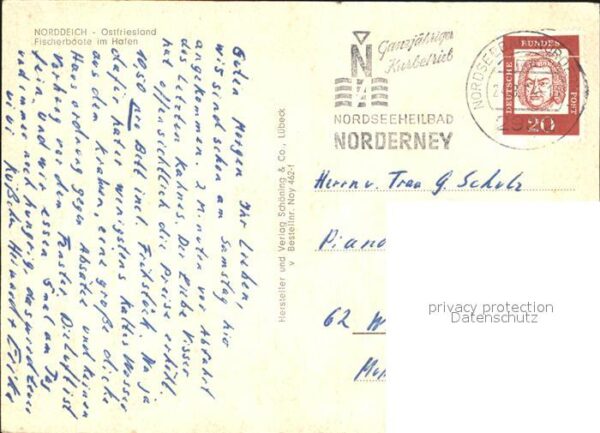 NORDDEICH - Ostfriesland
Fischerboote im Hafen
Guten Morgen Ihr Lieben,
wir sind schon am Samstag hier
angekommen. 2 Minuten vor Abfahrt
des letzten Kahnes. Die Liebe Visser
hat offensichtlich die Preise erhöht
10,50 Bett incl. Frühstück. Na ja
dafür hat er wenigstens kaltes Wasser
aus dem Kranen, eine große dicke
Hausordnung gegen Absätze und keinen
Vorhang vor dem Fenster. Die Luft ist
fein, und wir essen 5mal am Tag
und immer noch hungrig, das wird teuer
viele Küßchen
Hersteller und Verlag Schöning & Co., Lübeck
v Bestellnr. Noy 462-1
Ganzjähriger
Kurbetrieb
N
NORDSEEHEILBAD
NORDERNEY
NORDSEEB
DEUTSCHE
BUNDES
POST
20
Herrn u. Frau G. Scholz
Piano
62 W
privacy protection
Datenschutz